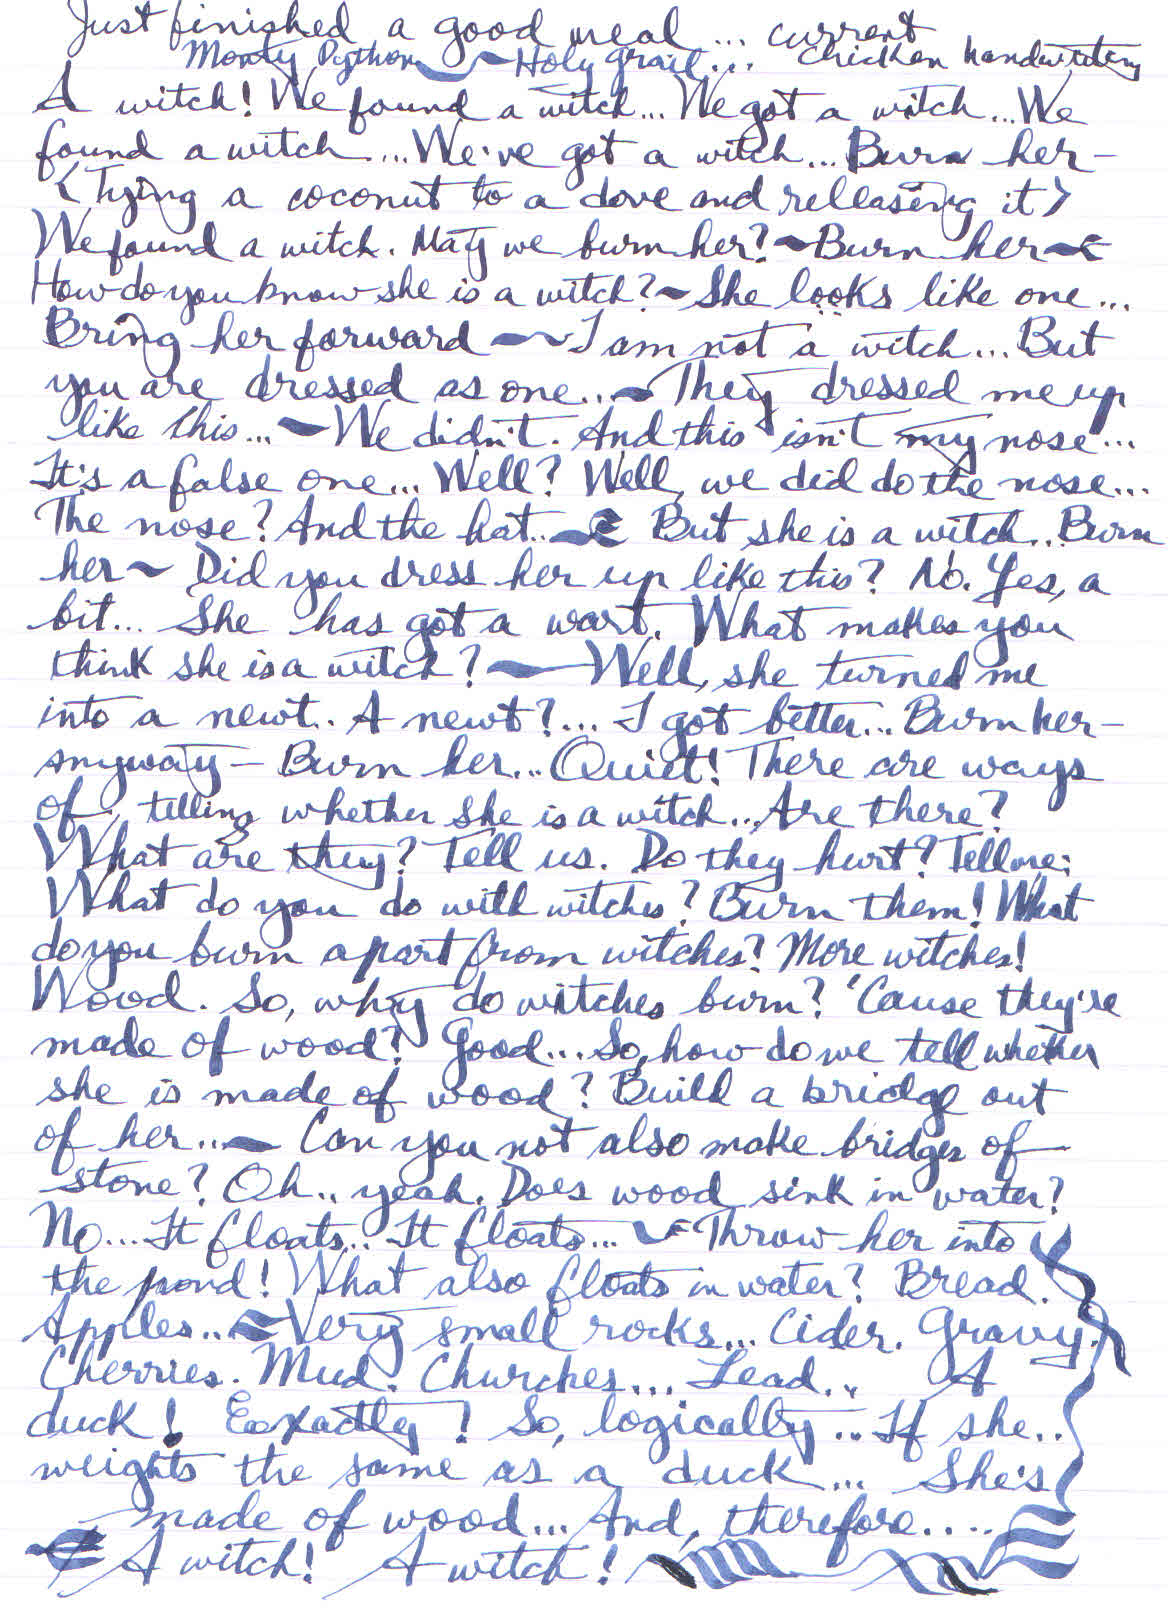 Just finished a good meal... current
Monty Python ~ Holy Grail... chicken handwriting
A witch! We found a witch... We got a witch... We
found a witch.... We've got a witch... Burn her-
<Tying a coconut to a dove and releasing it>
We found a witch. May we burn her? ~ Burn her ~
How do you know she is a witch? ~ She looks like one...
Bring her forward ~ I am not a witch... But
you are dressed as one... ~ They dressed me up
like this... ~ We didn't. And this isn't my nose...
It's a false one... Well? Well, we did do the nose...
The nose? And the hat.. ~ But she is a witch... Burn
her ~ Did you dress her up like this? No. Yes, a
bit... She has got a wart. What makes you
think she is a witch? ~ Well, she turned me
into a newt.. A newt?... I got better... Burn her-
anyway - Burn her... Quiet! There are ways
of telling whether she is a witch... Are there?
What are they? Tell us. Do they hurt? Tell me:
What do you do with witches? Burn them! What
do you burn apart from witches? More witches!
Wood. So, why do witches burn? 'Cause they're
made of wood? Good... So, how do we tell whether
she is made of wood? Build a bridge out
of her... ~ Can you not also make bridges of
stone? Oh.. yeah. Does wood sink in water?
No.... It floats... It floats... ~ Throw her into
the pond! What also floats in water? Bread.
Apples.. ~ Very small rocks... Cider. Gravy.
Cherries. Mud. Churches... Lead.. A
duck! Exactly! So, logically... If she..
weights the same as a duck... She's
made of wood... And, therefore....
A witch! A witch!